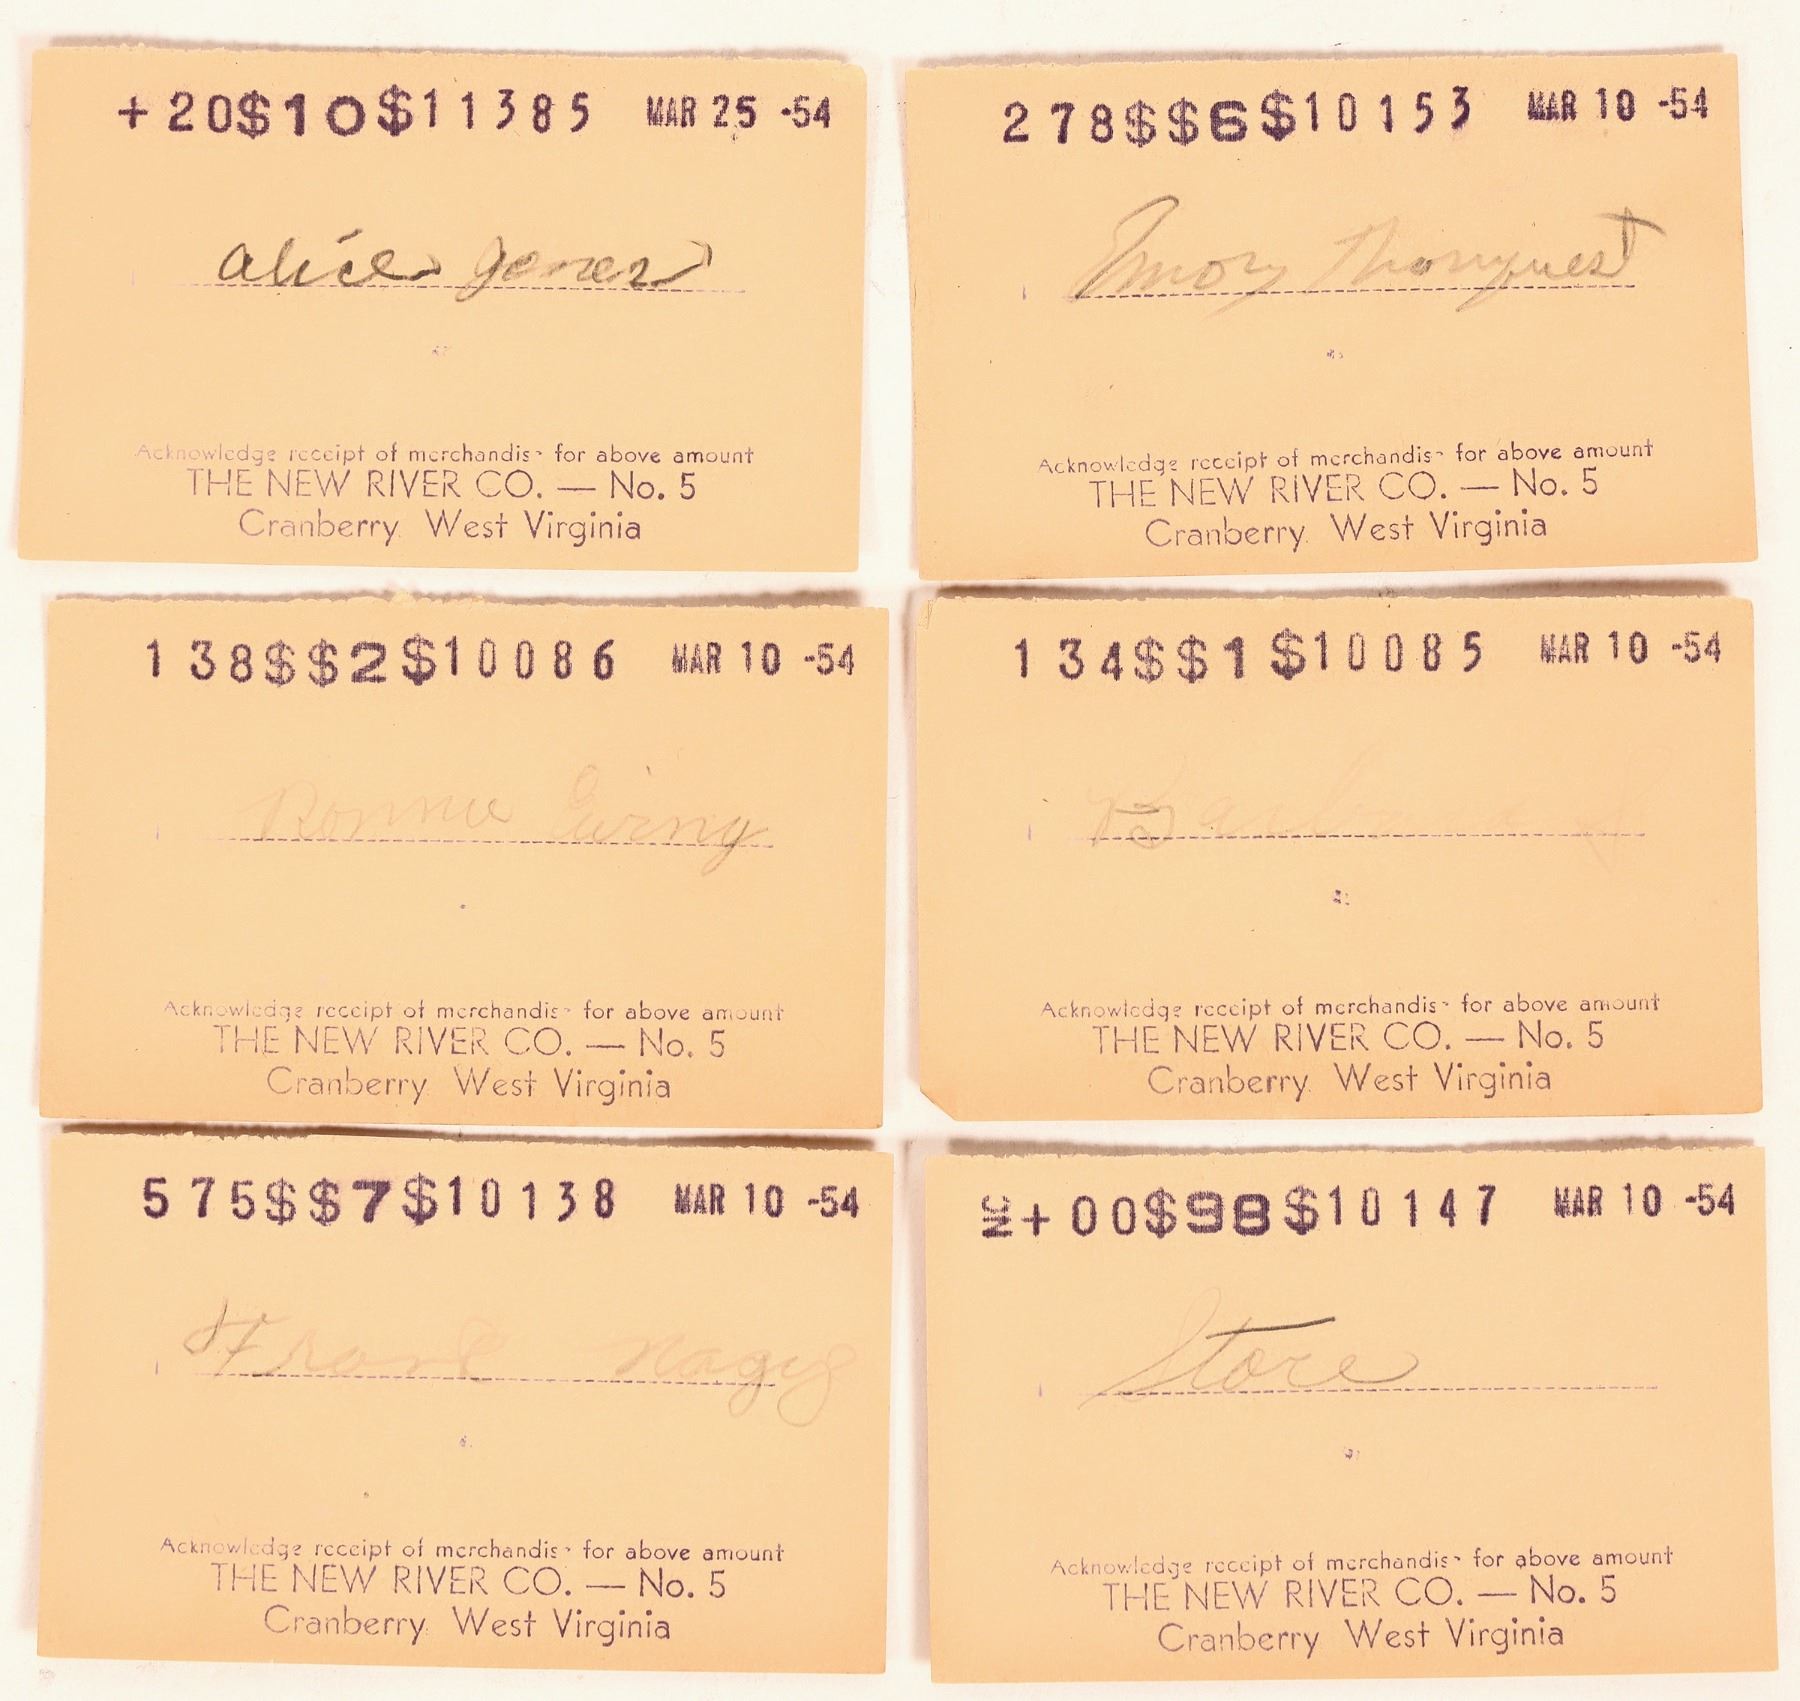 +20$10$11385 MAR 25 -54
Alice Jones
Acknowledge receipt of merchandise for above amount
THE NEW RIVER CO. — No. 5
Cranberry, West Virginia
278$$6$10153 MAR 10 -54
Emory
Acknowledge receipt of merchandise for above amount
THE NEW RIVER CO. — No. 5
Cranberry, West Virginia
138$$2$10086 MAR 10 -54
Ronnie Ewing
Acknowledge receipt of merchandise for above amount
THE NEW RIVER CO. — No. 5
Cranberry, West Virginia
134$$1$10085 MAR 10 -54
Acknowledge receipt of merchandise for above amount
THE NEW RIVER CO. — No. 5
Cranberry, West Virginia
575$$7$10138 MAR 10 -54
Frank Nagy
Acknowledge receipt of merchandise for above amount
THE NEW RIVER CO. — No. 5
Cranberry, West Virginia
+00$98$10147 MAR 10 -54
Store
Acknowledge receipt of merchandise for above amount
THE NEW RIVER CO. — No. 5
Cranberry, West Virginia